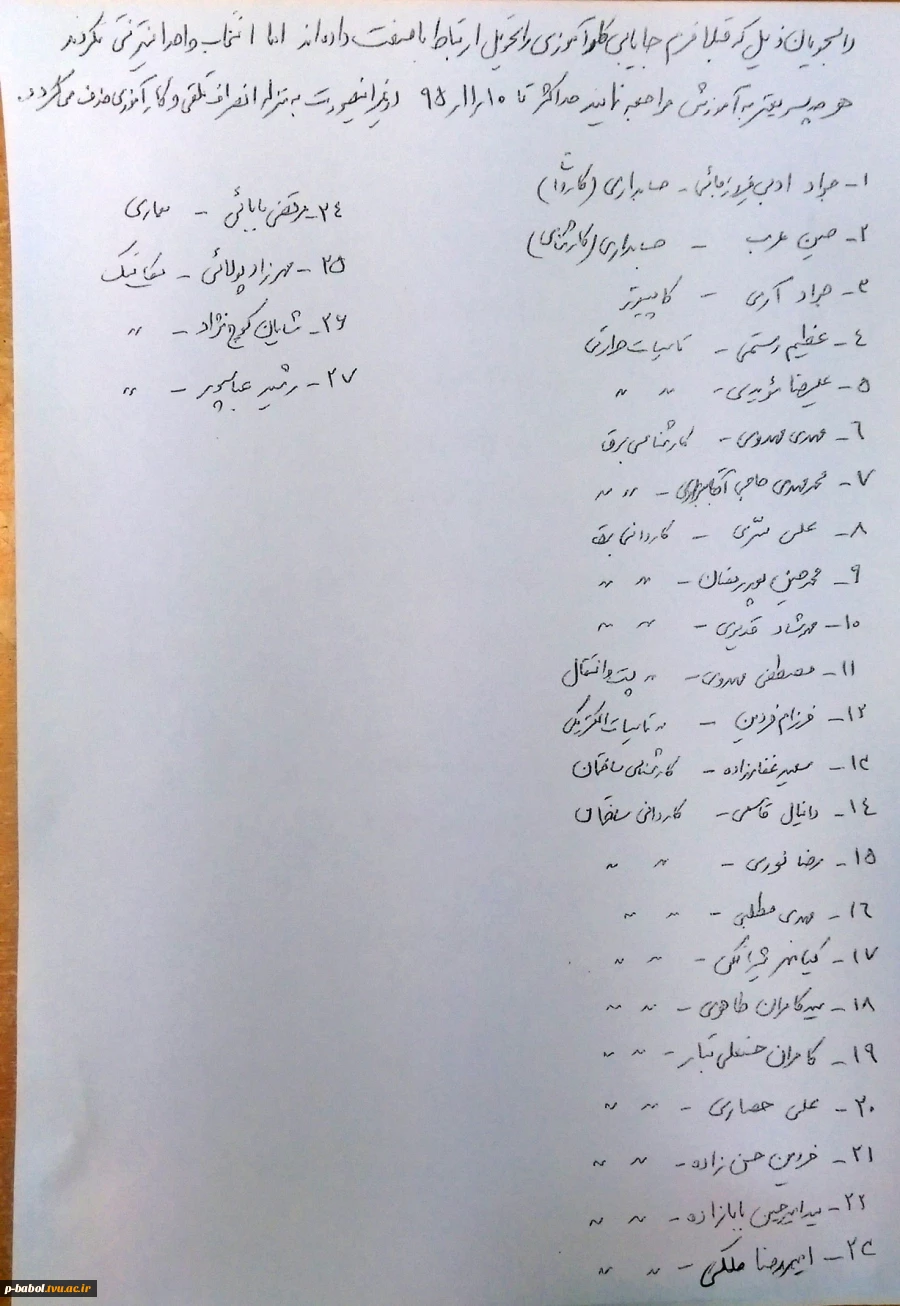 دانشجویان ذیل که قبلا فرم جابجایی کارآموزی را تحویل ارتباط با صنعت داده‌اند اما انتخاب واحد اینترنتی نکردند
هر چه سریعتر به آموزش مراجعه نمایند حداکثر تا ۹۵/۱۱/۱۰ در غیر اینصورت به منزله انصراف تلقی و کارآموزی حذف می‌گردد.
۱- جواد ادبی - حسابداری (کاردانی)
۲- حسین عرب - حسابداری (کارشناسی)
۳- جواد آرمی - کامپیوتر
٤- عظیم رستمی - تاسیسات حرارتی
۵- علیرضا مؤیدی - " "
٦- مهدی مهدوی - کارشناسی برق
۷- محمدمهدی حاجی - " "
۸- علی - کاردانی برق
۹- محمدحسین پوررمضان - " "
۱۰- مهرشاد قدیری - " "
۱۱- مصطفی مهدوی - " پست و انتقال
۱۲- فرزام فردین - " تاسیسات الکتریکی
۱۳- سعید غفارزاده - کارشناسی ساختمان
۱٤- دانیال قاسمی - کاردانی ساختمان
۱۵- رضا نوری - " "
۱٦- مهدی مطلبی - " "
۱۷- کیانمهر - " "
۱۸- سیدکامران طاهری - " "
۱۹- کامران حسنعلی تبار - " "
۲۰- علی حصاری - " "
۲۱- فردین حسن زاده - " "
۲۲- سیدامیرحسین بابازاده - " "
۲۳- امیررضا ملکی - " "
۲٤- مرتضی بابائی - معماری
۲۵- مهرزاد پولائی - مکانیک
۲۶- شایان کوچ نژاد - "
۲۷- رشید عباسپور - "
p-babol.tvu.ac.ir